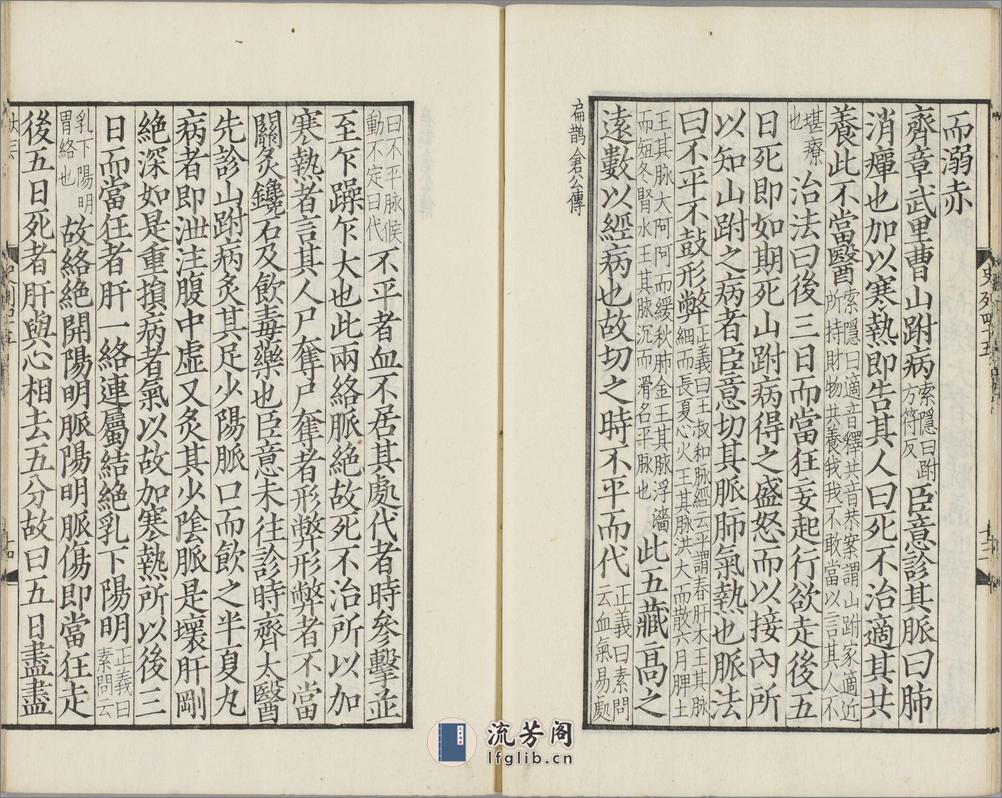 而溺赤
齊章武里曹山跗病索隱曰跗方符反臣意診其脈曰肺
消癉也加以寒熱即告其人曰死不治適其共
養此不當醫索隱曰適音釋共音恭案謂山跗家適近所持財物共養我我不敢當以言其人不
堪療也治法曰後三日而當狂妄起行欲走後五
日死即如期死山跗病得之盛怒而以接內所
以知山跗之病者臣意切其脈肺氣熱也脈法
曰不平不鼓形弊正義曰王叔和脉經云平謂春肝木王其脉細而長夏心火王其脉洪大而散六月脾土
王其脉大阿阿而緩秋肺金王其脉浮濇而短冬腎水王其脉沉而滑名平脉也此五藏高之
遠數以經病也故切之時不平而代正義曰素問云血氣易處
扁鵲倉公傳
史列四十五
十二
曰不平脉候動不定曰代不平者血不居其處代者時參擊並
至乍躁乍大也此兩絡脈絶故死不治所以加
寒熱者言其人尸奪尸奪者形弊形弊者不當
關灸鑱石及飲毒藥也臣意未往診時齊太醫
先診山跗病灸其足少陽脈口而飲之半夏丸
病者即泄注腹中虛又灸其少陰脈是壞肝剛
絶深如是重損病者氣以故加寒熱所以後三
日而當狂者肝一絡連屬結絶乳下陽明正義曰素問云
乳下陽明胃絡也故絡絶開陽明脈陽明脈傷即當狂走
後五日死者肝與心相去五分故曰五日盡盡
流芳阁
lfglib.cn